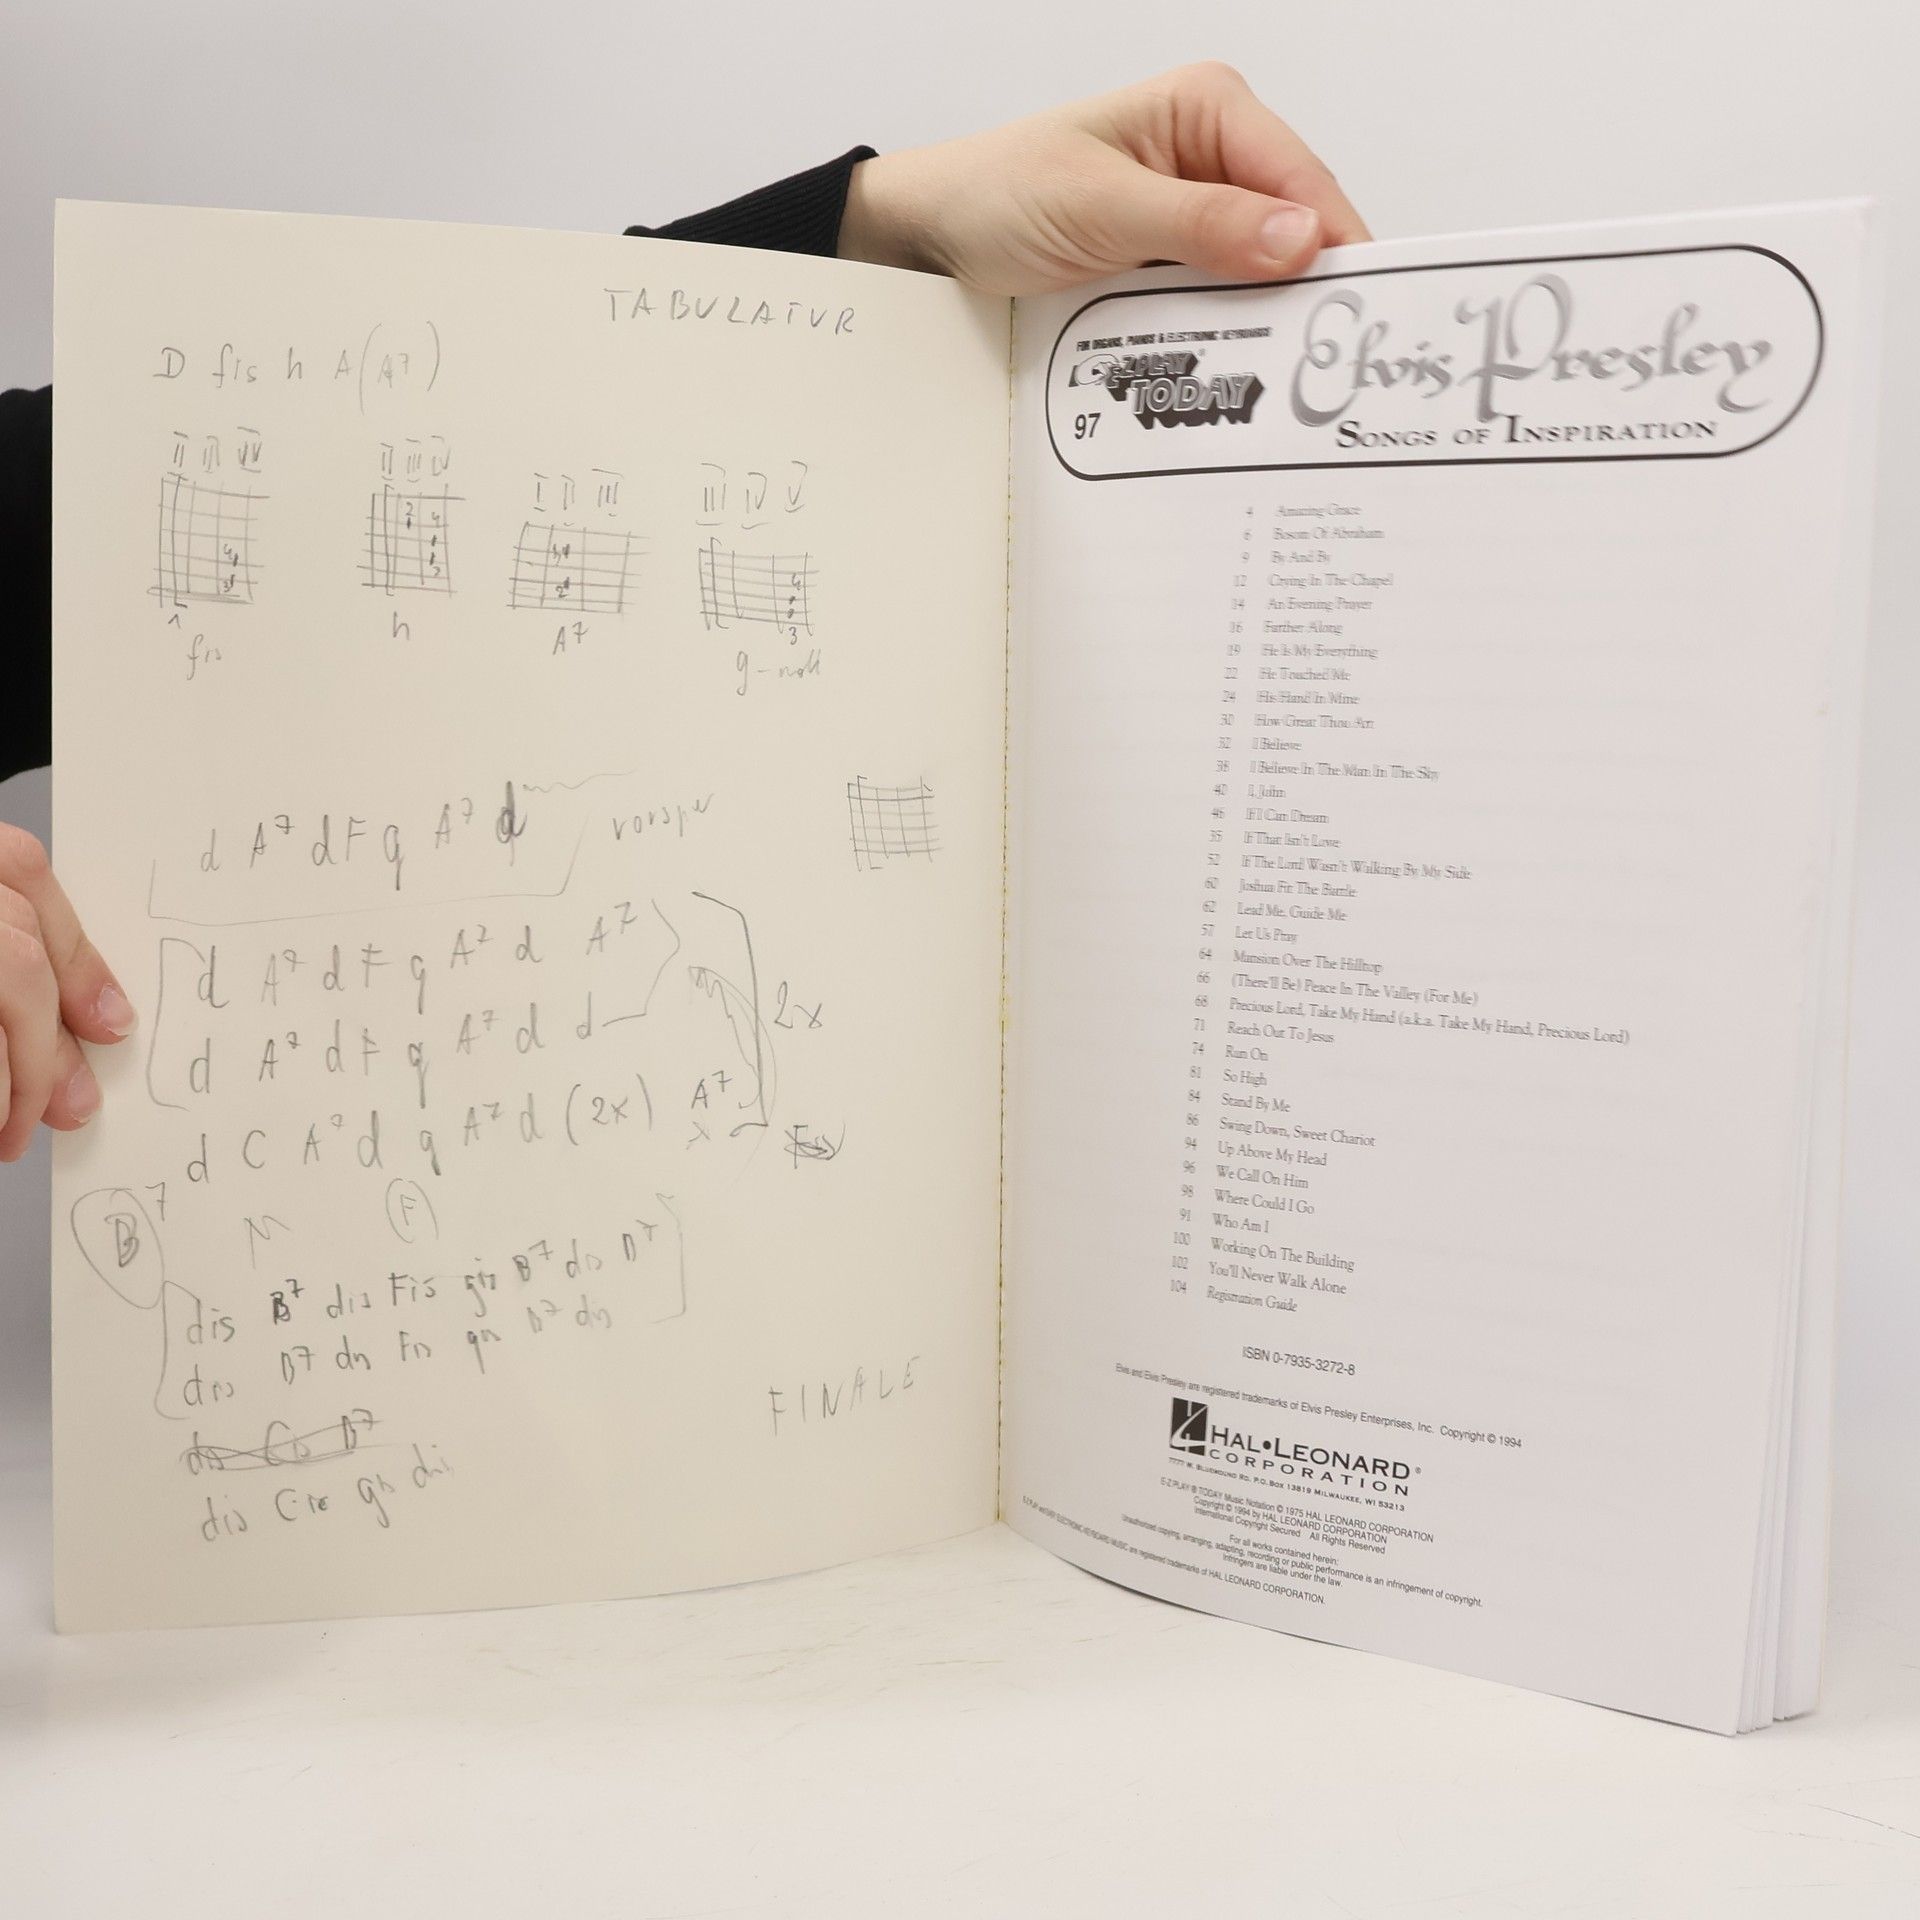 TABULATUR
D fis h A (A7)
II III IV
II III IV
I II III
III IV V
fis
h
A7
g-moll
d A7 d F g A7 d
d A7 d F g A7 d A7
d A7 d F g A7 d d
2x
d C A7 d g A7 d (2x) A7
B7
F
dis B7 dis Fis gis B7 dis B7
dis B7 dis Fis gis B7 dis
dis Cis B7
dis Cis gis dis
FINALE
FOR ORGANS, PIANOS & ELECTRONIC KEYBOARDS
E-Z PLAY® TODAY
97
Elvis Presley
SONGS OF INSPIRATION
4 Amazing Grace
6 Bosom Of Abraham
9 By And By
12 Crying In The Chapel
14 An Evening Prayer
16 Farther Along
19 He Is My Everything
22 He Touched Me
24 His Hand In Mine
30 How Great Thou Art
32 I Believe
38 I Believe In The Man In The Sky
40 I, John
46 If I Can Dream
35 If That Isn't Love
52 If The Lord Wasn't Walking By My Side
60 Joshua Fit The Battle
62 Lead Me, Guide Me
57 Let Us Pray
64 Mansion Over The Hilltop
66 (There'll Be) Peace In The Valley (For Me)
68 Precious Lord, Take My Hand (a.k.a. Take My Hand, Precious Lord)
71 Reach Out To Jesus
74 Run On
81 So High
84 Stand By Me
86 Swing Down, Sweet Chariot
94 Up Above My Head
96 We Call On Him
98 Where Could I Go
91 Who Am I
100 Working On The Building
102 You'll Never Walk Alone
104 Registration Guide
ISBN 0-7935-3272-8
Elvis and Elvis Presley are registered trademarks of Elvis Presley Enterprises, Inc. Copyright © 1994
HAL•LEONARD®
CORPORATION
7777 W. BLUEMOUND RD. P.O. BOX 13819 MILWAUKEE, WI 53213
E-Z PLAY ® TODAY Music Notation © 1975 HAL LEONARD CORPORATION
Copyright © 1994 by HAL LEONARD CORPORATION
International Copyright Secured All Rights Reserved
For all works contained herein:
Unauthorized copying, arranging, adapting, recording or public performance is an infringement of copyright.
Infringers are liable under the law.
E-Z PLAY and EASY ELECTRONIC KEYBOARD MUSIC are registered trademarks of HAL LEONARD CORPORATION.